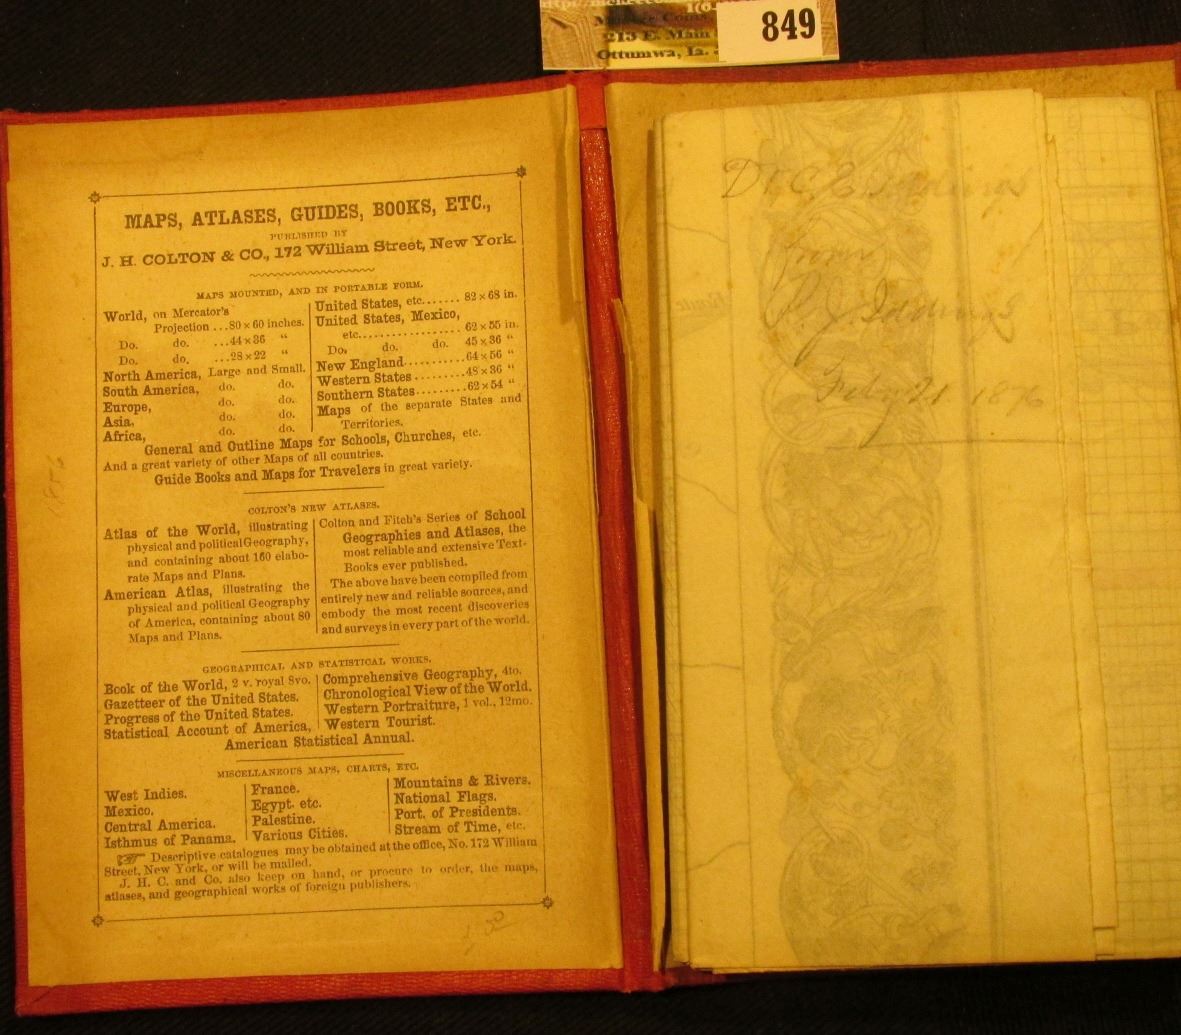 213 E. Main
Ottumwa, Ia.
849
MAPS, ATLASES, GUIDES, BOOKS, ETC.,
PUBLISHED BY
J. H. COLTON & CO., 172 William Street, New York.
MAPS MOUNTED, AND IN PORTABLE FORM.
World, on Mercator's
Projection ...80 × 60 inches.
Do. do. ...44 × 36 "
Do. do. ...28 × 22 "
North America, Large and Small.
South America, do. do.
Europe, do. do.
Asia, do. do.
Africa, do. do.
United States, etc....... 82 × 68 in.
United States, Mexico,
etc..................... 62 × 55 in.
Do. do. do. 45 × 36 "
New England..........64 × 56 "
Western States .........48 × 36 "
Southern States.........62 × 54 "
Maps of the separate States and
Territories.
General and Outline Maps for Schools, Churches, etc.
And a great variety of other Maps of all countries.
Guide Books and Maps for Travelers in great variety.
COLTON'S NEW ATLASES.
Atlas of the World, illustrating
physical and political Geography,
and containing about 160 elabo-
rate Maps and Plans.
American Atlas, illustrating the
physical and political Geography
of America, containing about 80
Maps and Plans.
Colton and Fitch's Series of School
Geographies and Atlases, the
most reliable and extensive Text-
Books ever published.
The above have been compiled from
entirely new and reliable sources, and
embody the most recent discoveries
and surveys in every part of the world.
GEOGRAPHICAL AND STATISTICAL WORKS.
Book of the World, 2 v. royal 8vo.
Gazetteer of the United States.
Progress of the United States.
Statistical Account of America,
Comprehensive Geography, 4to.
Chronological View of the World.
Western Portraiture, 1 vol., 12mo.
Western Tourist.
American Statistical Annual.
MISCELLANEOUS MAPS, CHARTS, ETC.
West Indies.
Mexico.
Central America.
Isthmus of Panama.
France.
Egypt. etc.
Palestine.
Various Cities.
Mountains & Rivers.
National Flags.
Port. of Presidents.
Stream of Time, etc.
Descriptive catalogues may be obtained at the office, No. 172 William
Street, New York, or will be mailed.
J. H. C. and Co. also keep on hand, or procure to order, the maps,
atlases, and geographical works of foreign publishers.
1856
Dr. C.
from
Iddings